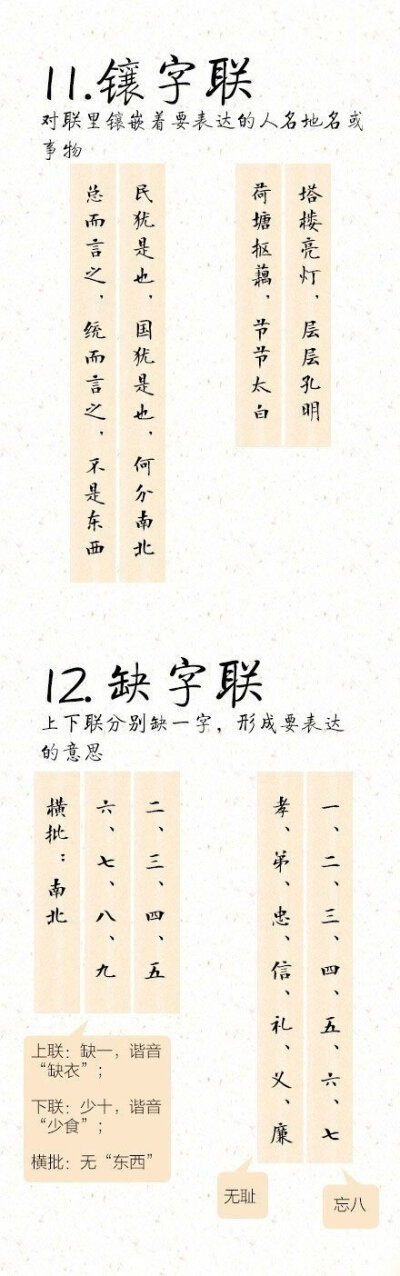 11.镶字联
对联里镶嵌着要表达的人名地名或
事物
塔楼亮灯，层层孔明
荷塘抠藕，节节太白
民犹是也，国犹是也，何分南北
总而言之，统而言之，不是东西
12.缺字联
上下联分别缺一字，形成要表达
的意思
一、二、三、四、五、六、七
孝、弟、忠、信、礼、义、廉
忘八
无耻
二、三、四、五
六、七、八、九
横批：南北
上联：缺一，谐音
“缺衣”；
下联：少十，谐音
“少食”；
横批：无“东西”